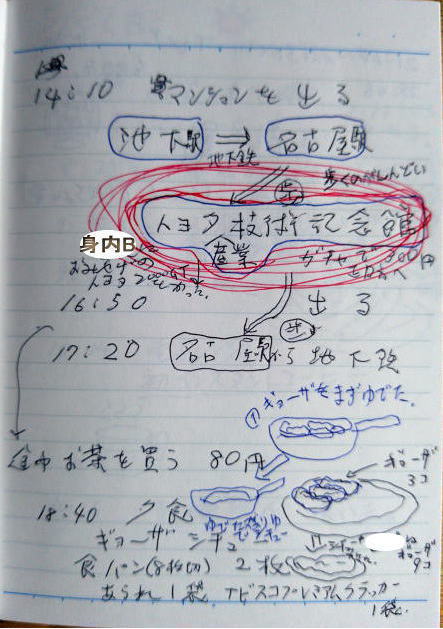 14:10 マンションを出る
池下駅 ⇒ 名古屋駅
地下鉄
歩くのがしんどい
歩
トヨタ技術記念館
産業
ガチャで300円
身内Bに
16:50 出る
歩
17:20 名古屋駅から地下鉄
①ギョーザをまずゆでた。
途中お茶を買う 80円
ギョーザ
3コ
18:40 夕食
ギョーザ シチュー
ギョーザ
9コ
食パン(8枚切) 2枚
あられ1袋 ナビスコプレミアムクラッカー
1袋